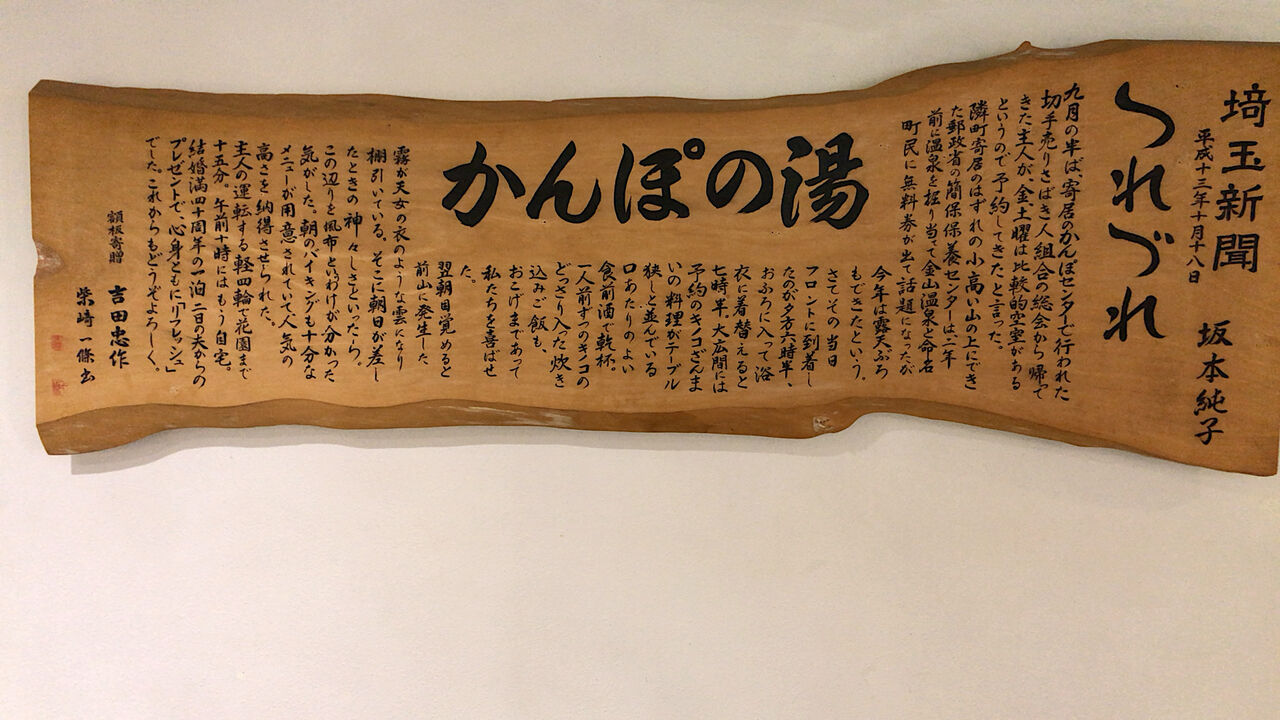 埼玉新聞
平成十三年十月十八日
坂本純子
つれづれ
九月の半ば、寄居のかんぽセンターで行われた
切手売りさばき人組合の総会から帰って
きた主人が、金土曜は比較的空室がある
というので予約してきたと言った。
隣町寄居のはずれの小高い山の上にでき
た郵政省の簡保保養センターは二年
前に温泉を掘り当て金山温泉と命名
町民に無料券が出て話題になったが
今年は露天ぶろ
もできたという。
かんぽの湯
さてその当日
フロントに到着し
たのが夕方六時半、
おふろに入って浴
衣に着替えると
七時半、大広間には
予約のキノコざんま
いの料理がテーブル
狭しと並んでいる
口あたりのよい
食前酒で乾杯。
一人前ずつのキノコの
どっさり入った炊き
込みご飯も、
おこげまであって
私たちを喜ばせ
た。
翌朝目覚めると
前山に発生した
霧が天女の衣のような雲になり
棚引いている。そこに朝日が差し
たときの神々しさといったら。
この辺りを風布というわけが分かった
気がした。朝のバイキングも十分な
メニューが用意されていて人気の
高さを納得させられた。
主人の運転する軽四輪で花園まで
十五分。午前十時にはもう自宅。
結婚満四十周年の一泊二日の夫からの
プレゼントで、心身ともに「リフレッシュ」
でした。これからもどうぞよろしく。
額板寄贈 吉田忠作
柴崎一條書